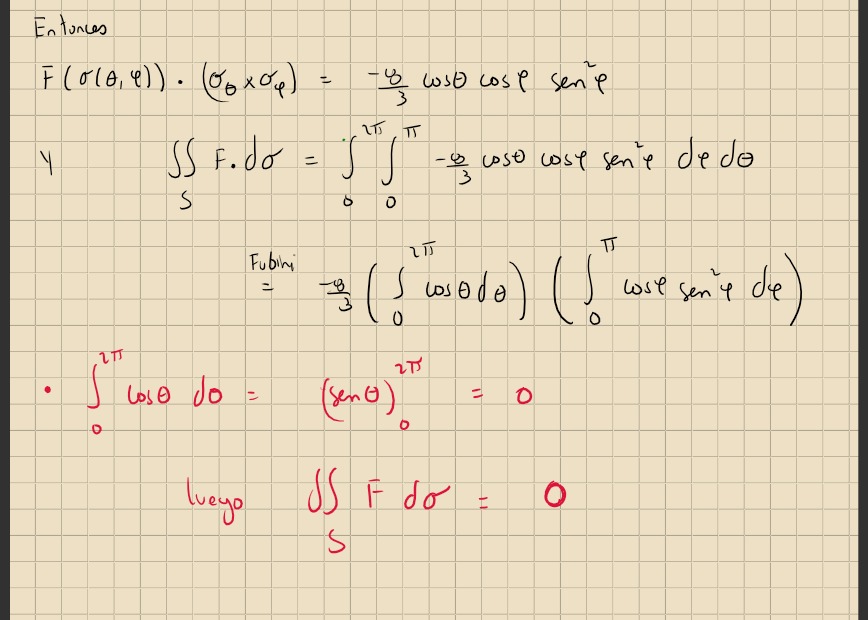 Entonces
F(σ(θ,φ)) · (σ_θ × σ_φ) = -8/3 cosθ cosφ sen²φ
Y ∬_S F·dσ = ∫_0^{2π} ∫_0^π -8/3 cosθ cosφ sen²φ dφ dθ
Fubini
= -8/3 (∫_0^{2π} cosθ dθ) (∫_0^π cosφ sen²φ dφ)
• ∫_0^{2π} cosθ dθ = (senθ)_0^{2π} = 0
luego ∬_S F dσ = 0